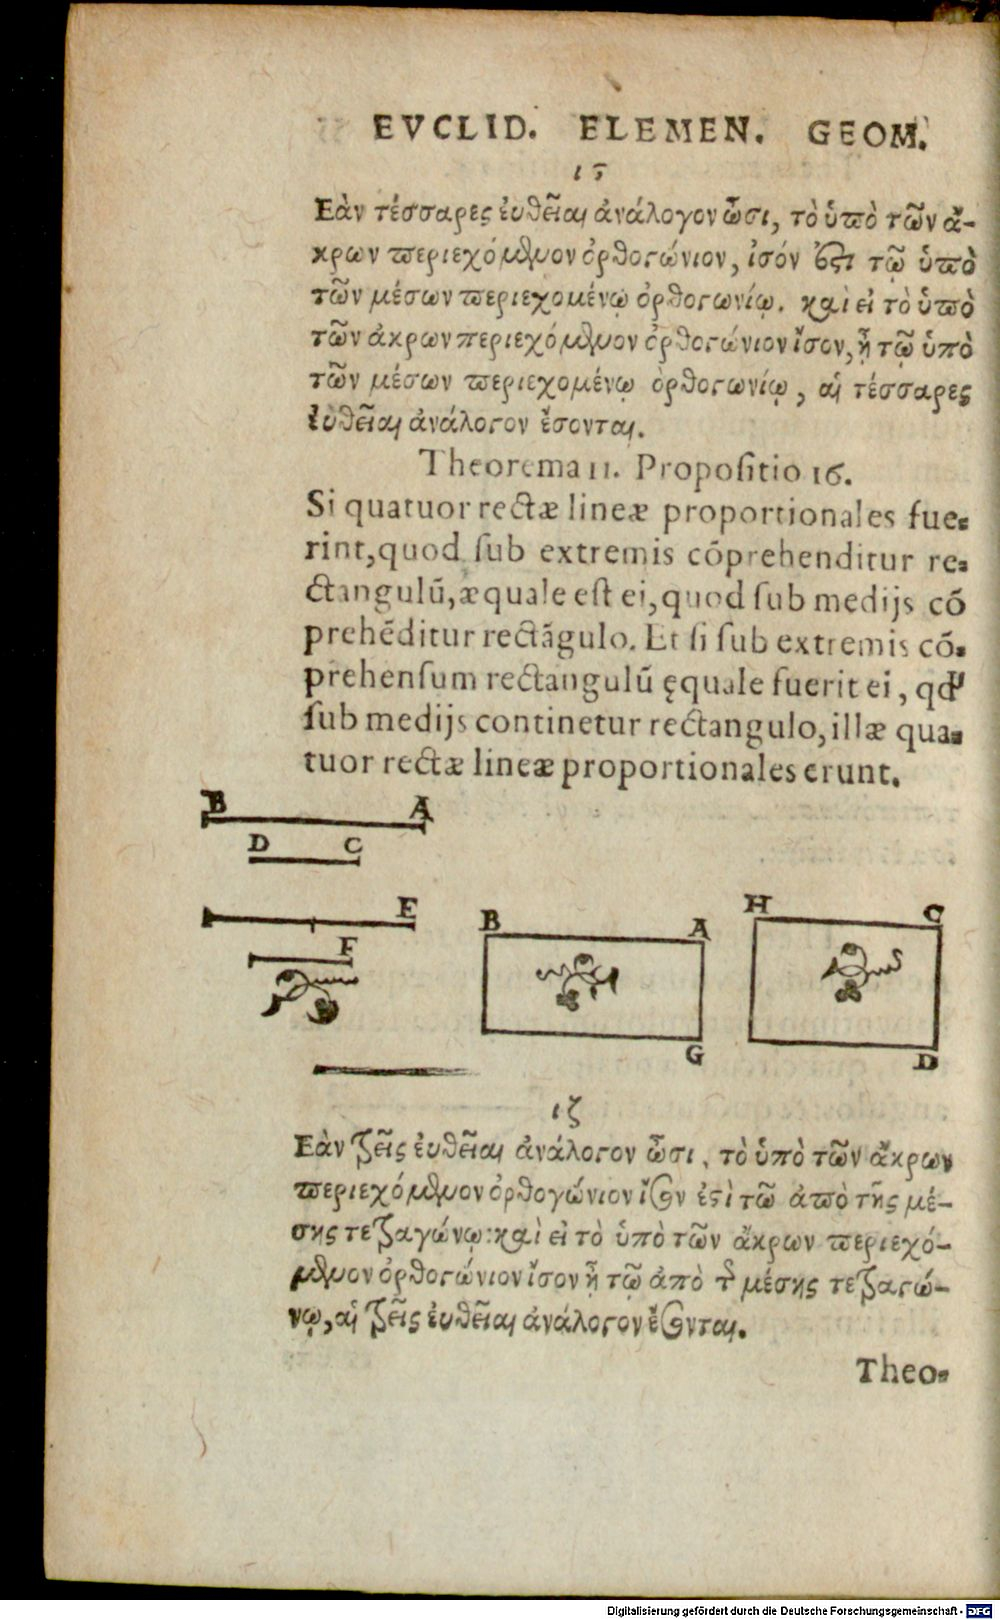 EVCLID. ELEMEN. GEOM.
ιϛ
Εὰν τέσσαρες ἐυθεῖαι ἀνάλογον ὦσι, τὸ ὑπὸ τῶν ἄ-
κρων περιεχόμενον ὀρθογώνιον, ἰσόν ἐστι τῷ ὑπὸ
τῶν μέσων περιεχομένῳ ὀρθογωνίῳ. καὶ εἰ τὸ ὑπὸ
τῶν ἀκρων περιεχόμενον ὀρθογώνιον ἴσον, ᾖ τῷ ὑπὸ
τῶν μέσων περιεχομένῳ ὀρθογωνίῳ, αἱ τέσσαρες
ἐυθεῖαι ἀνάλογον ἔσονται.
Theorema 11. Propositio 16.
Si quatuor rectæ lineæ proportionales fue-
rint,quod sub extremis cõprehenditur re-
ctangulũ,æquale est ei,quod sub medijs cõ
prehẽditur rectãgulo. Et si sub extremis cõ-
prehensum rectangulũ ęquale fuerit ei, qd
sub medijs continetur rectangulo, illæ qua-
tuor rectæ lineæ proportionales erunt.
B A
D C
E
F
B A
G
H C
D
ιζ
Εὰν τρεῖς ἐυθεῖαι ἀνάλογον ὦσι, τὸ ὑπὸ τῶν ἄκρων
περιεχόμενον ὀρθογώνιον ἴσον ἐστὶ τῶ ἀπὸ τῆς μέ-
σης τετραγώνῳ: καὶ εἰ τὸ ὑπὸ τῶν ἄκρων περιεχό-
μενον ὀρθογώνιον ἴσον ᾖ τῷ ἀπὸ τῆς μέσης τετραγώ-
νῳ, αἱ τρεῖς ἐυθεῖαι ἀνάλογον ἔσονται.
Theo-
Digitalisierung gefördert durch die Deutsche Forschungsgemeinschaft - DFG